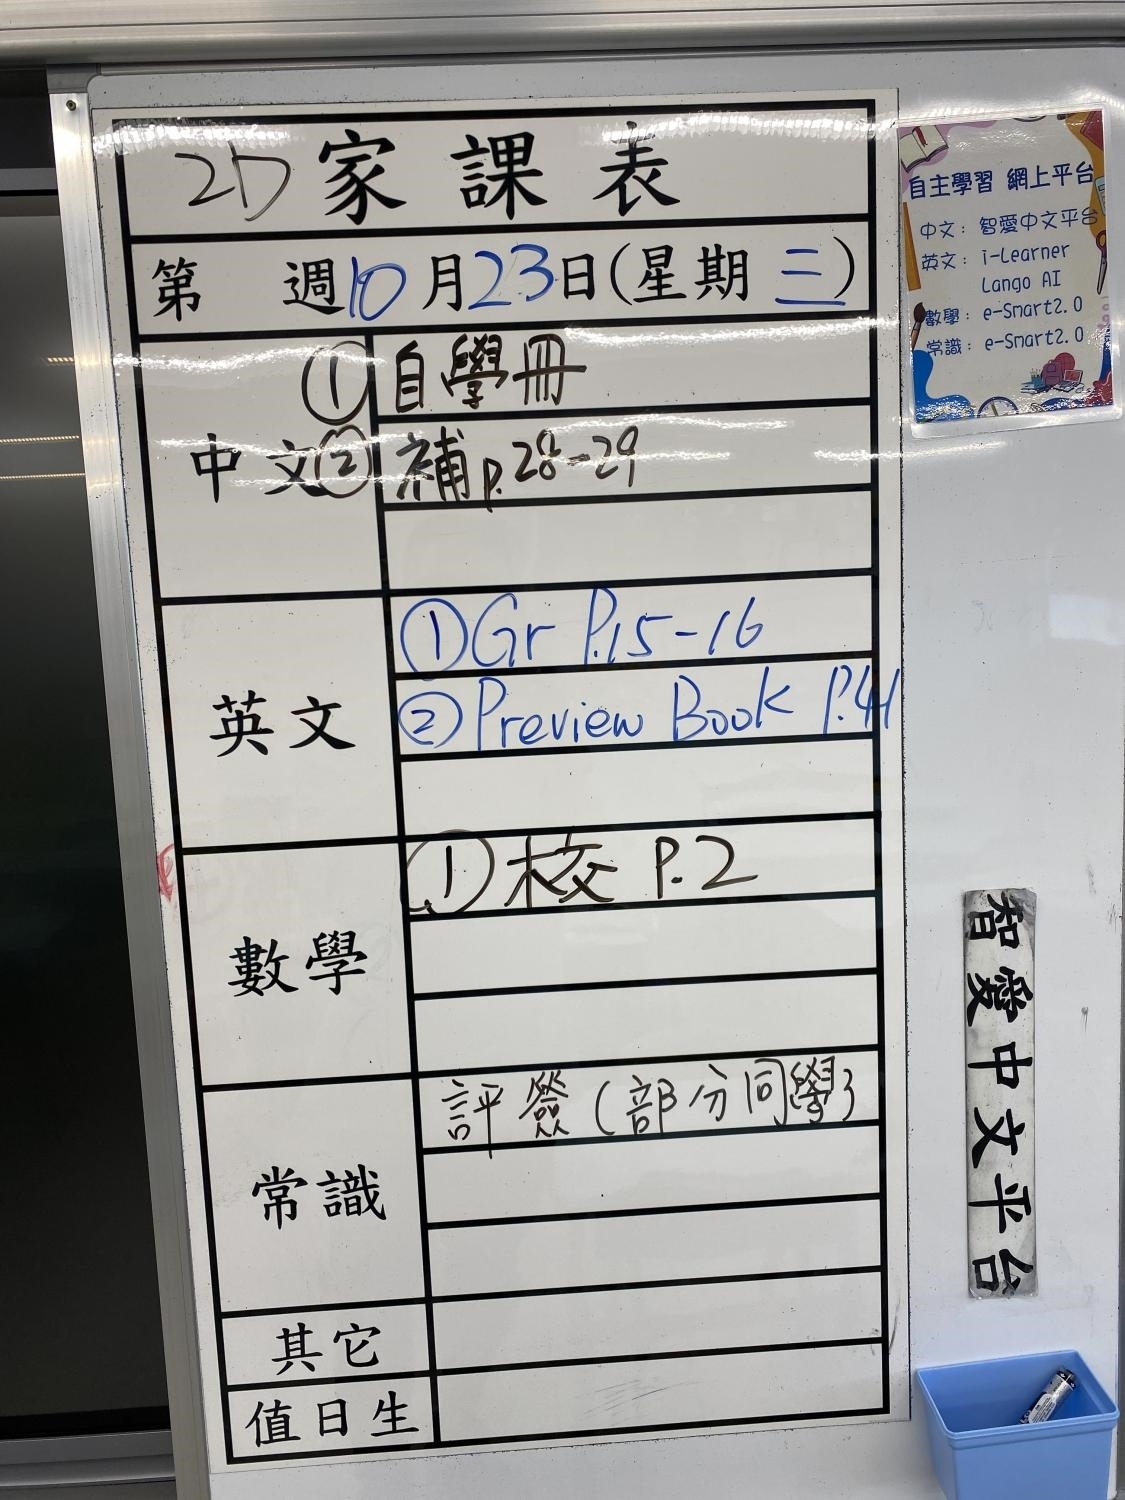 2D 家課表
第 週10月23日(星期三)
中文
① 自學冊
② 補p.28-29
英文
① Gr P.15-16
② Preview Book P.41
數學
① 校 P.2
常識
評簽(部分同學)
其它
值日生
自主學習 網上平台
中文：智愛中文平台
英文：i-Learner
Lango AI
數學：e-Smart2.0
常識：e-Smart2.0
智愛中文平台